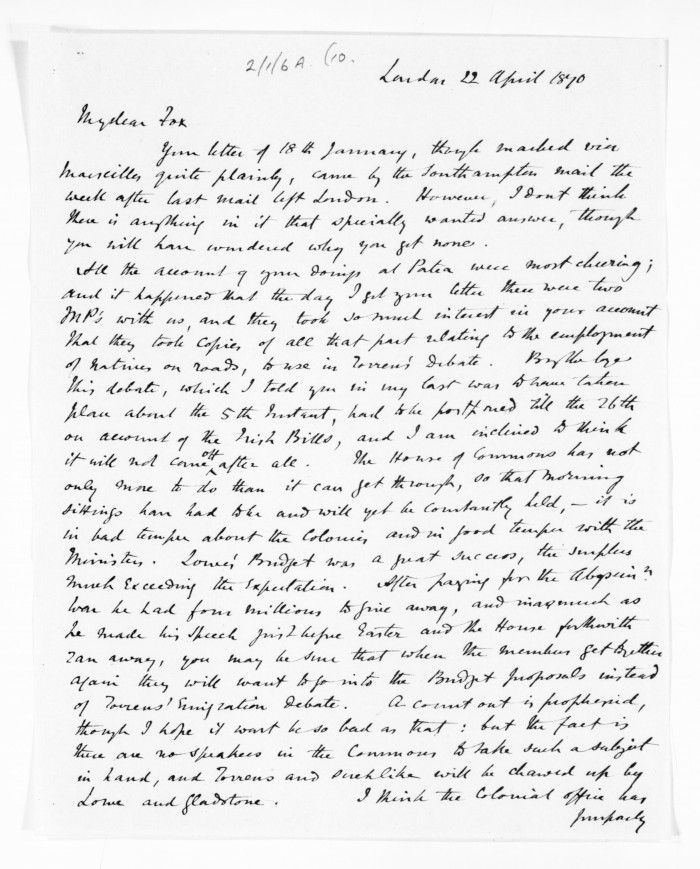 2/1/6A. (10.
London 22 April 1870
My dear Fox
Your letter of 18th January, though marked via
Marseilles quite plainly, came by the Southampton mail the
week after last mail left London. However, I dont think
there is anything in it that specially wanted answer, though
you will have wondered why you get none.
All the account of your doings at Patea were most cheering;
and it happened that the day I got your letter there were two
MP's with us, and they took so much interest in your account
that they took copies of all that part relating to the employment
of natives on roads, to use in Torrens' Debate. By the bye
this debate, which I told you in my last was to have taken
place about the 5th Instant, had to be postponed till the 26th
on account of the Irish Bills, and I am inclined to think
it will not come off after all. The House of Commons has not
only more to do than it can get through, so that morning
sittings have had to be and will yet be constantly held, – it is
in bad temper about the Colonies and in good temper with the
Ministers. Lowe's Budget was a great success, the surplus
much exceeding the expectation. After paying for the Abyssinn
War he had four millions to give away, and inasmuch as
he made his speech just before Easter and the House forthwith
ran away, you may be sure that when the members get together
again they will want to go into the Budget proposals instead
of Torrens' Emigration Debate. A count out is prophesied,
though I hope it wont be so bad as that: but the fact is
there are no speakers in the Commons to take such a subject
in hand, and Torrens and suchlike will be chawed up by
Lowe and Gladstone. I think the Colonial office has